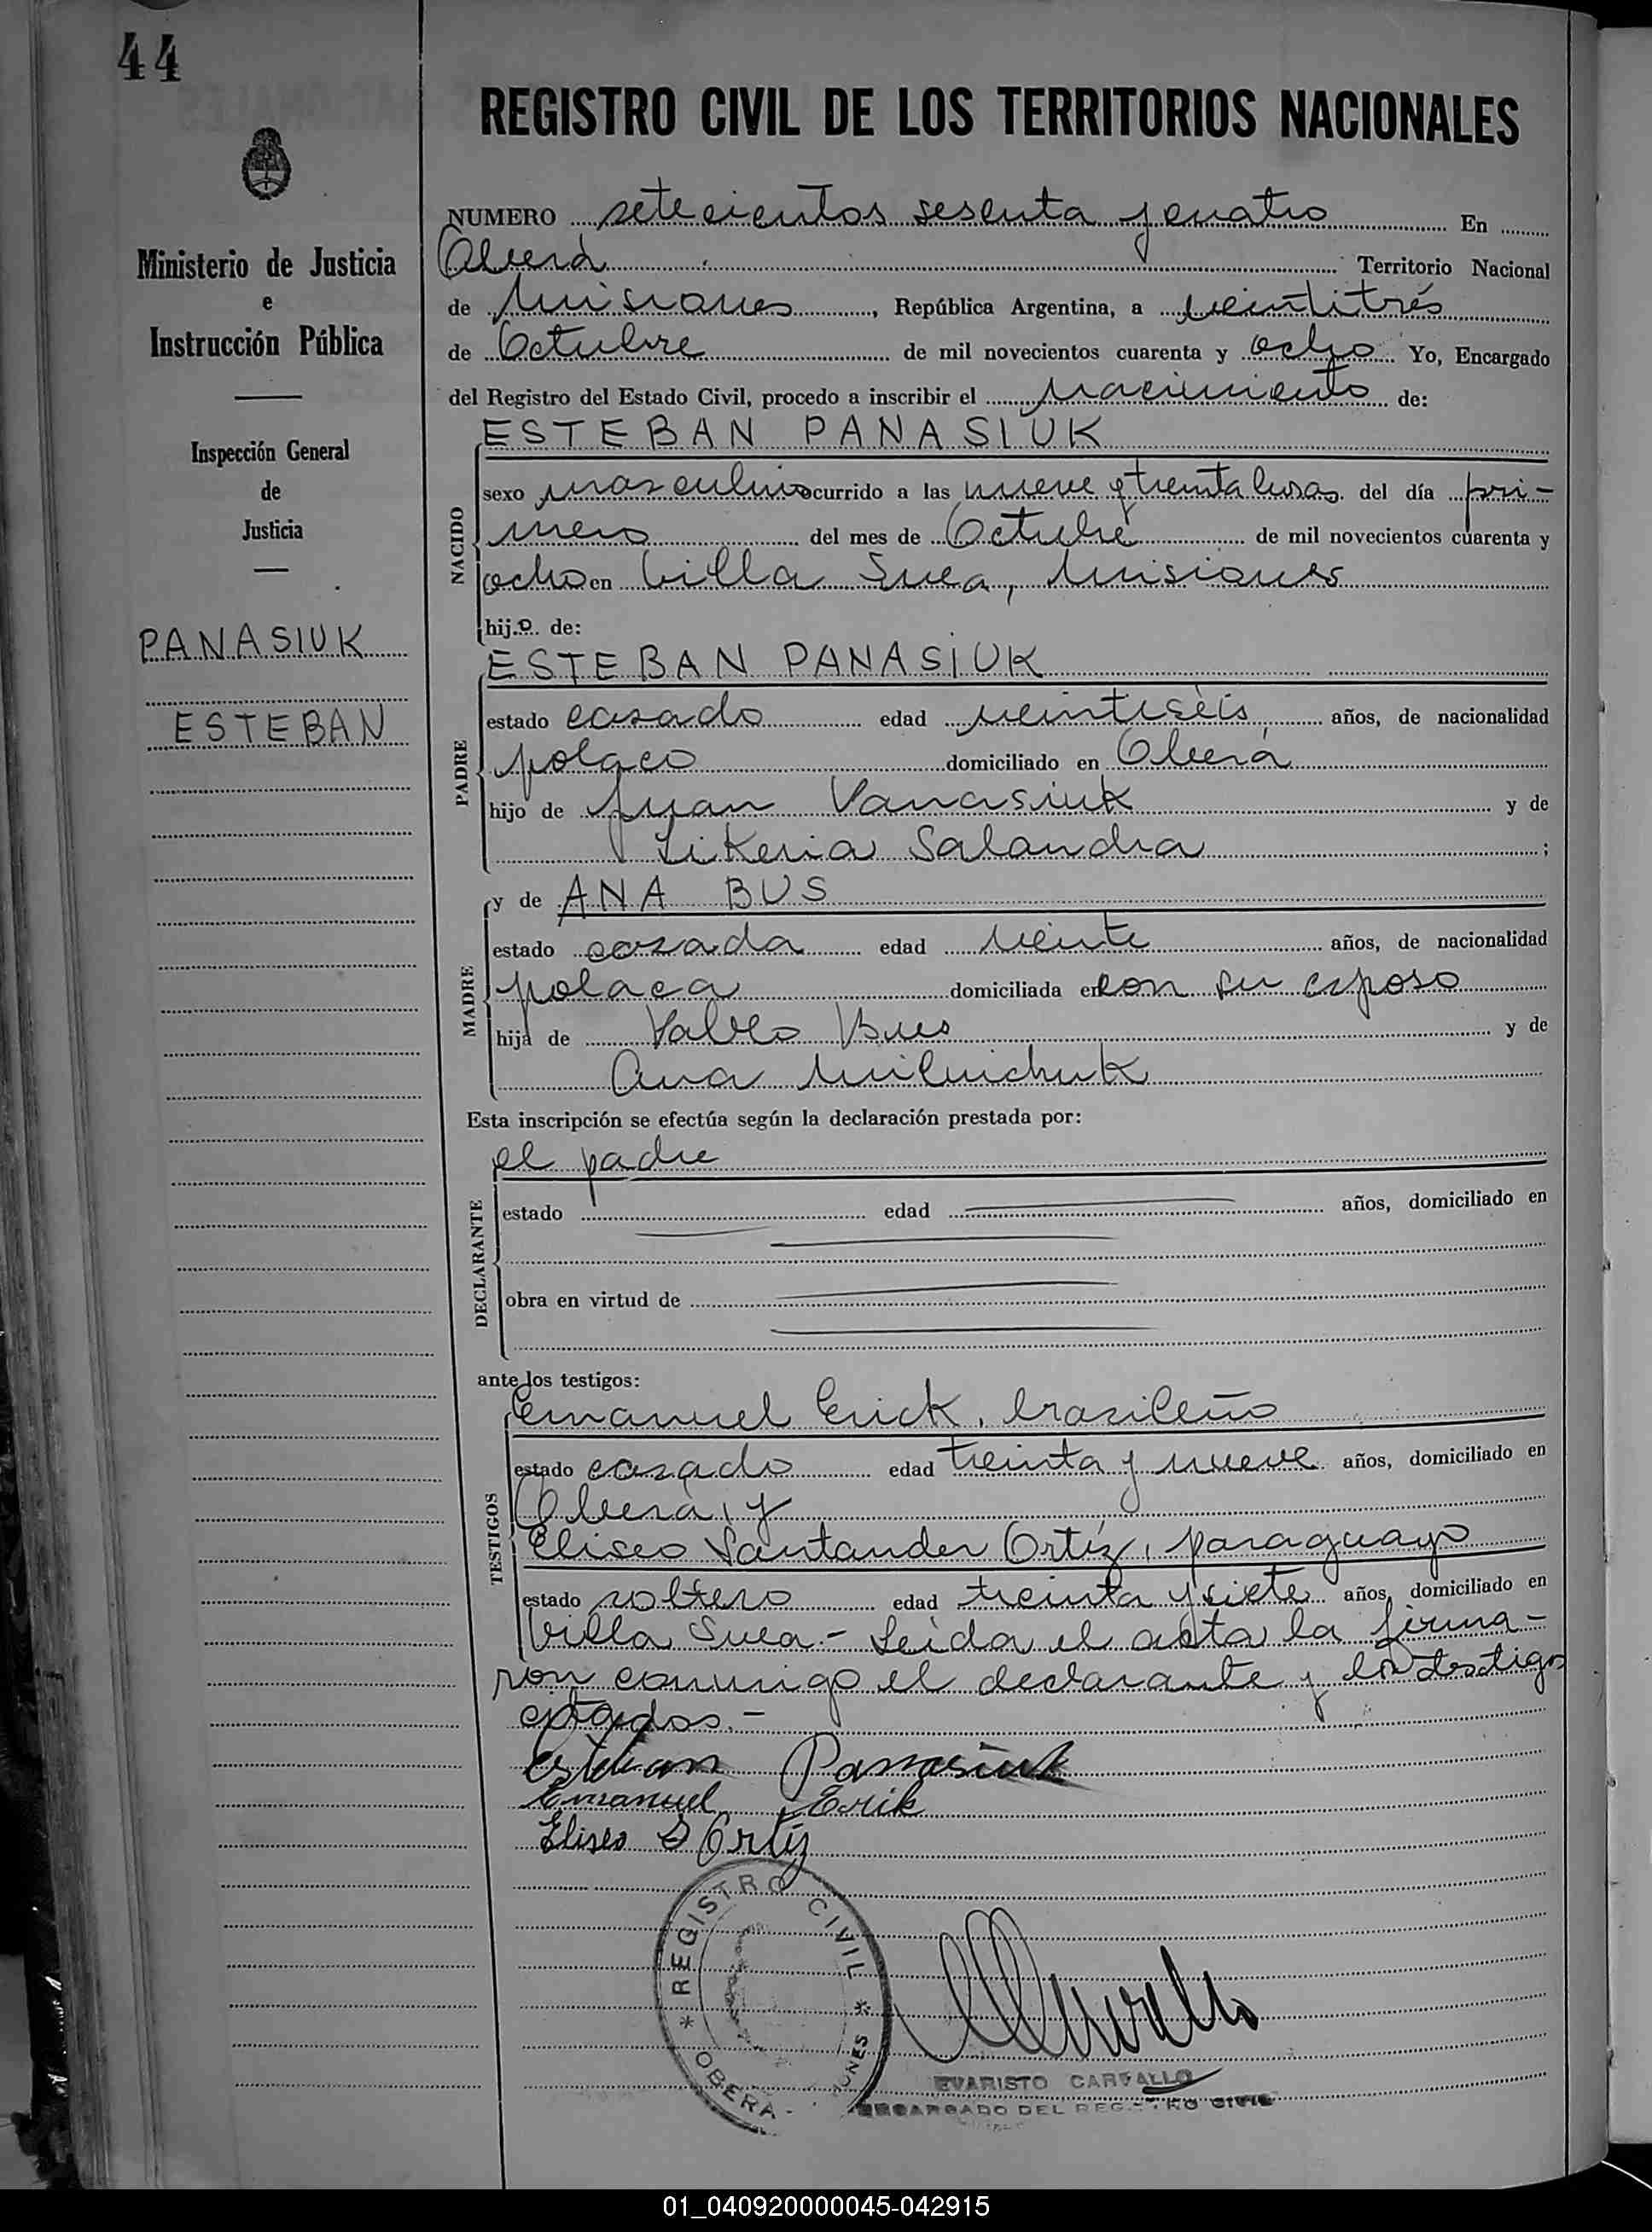 44
REGISTRO CIVIL DE LOS TERRITORIOS NACIONALES
Ministerio de Justicia
e
Instrucción Pública
Inspección General
de
Justicia
PANASIUK
ESTEBAN
NUMERO setecientos sesenta y cuatro En
Oberá Territorio Nacional
de Misiones, República Argentina, a veintitrés
de Octubre de mil novecientos cuarenta y ocho Yo, Encargado
del Registro del Estado Civil, procedo a inscribir el nacimiento de:
ESTEBAN PANASIUK
NACIDO
sexo masculino ocurrido a las nueve y treinta horas del día pri-
mero del mes de Octubre de mil novecientos cuarenta y
ocho en Villa Svea, Misiones
hijo de:
ESTEBAN PANASIUK
PADRE
estado casado edad veintiséis años, de nacionalidad
polaco domiciliado en Oberá
hijo de Juan Panasiuk y de
Likeria Salandra;
y de ANA BUS
MADRE
estado casada edad veinte años, de nacionalidad
polaca domiciliada en con su esposo
hija de Pablo Bus y de
Ana Milnichuk
Esta inscripción se efectúa según la declaración prestada por:
el padre
DECLARANTE
estado edad años, domiciliado en
obra en virtud de
ante los testigos:
Emanuel Erick, brasileño
TESTIGOS
estado casado edad treinta y nueve años, domiciliado en
Oberá, y
Eliseo Santander Ortíz, paraguayo
estado soltero edad treinta y siete años, domiciliado en
Villa Svea.- Leída el acta la firma-
ron conmigo el declarante y los testigos
citados.-
Esteban Panasiuk
Emanuel Erik
Eliseo S Ortíz
* REGISTRO CIVIL *
OBERA - IONES
EVARISTO CARVALLO
ENCARGADO DEL REGISTRO CIVIL
01_040920000045-042915